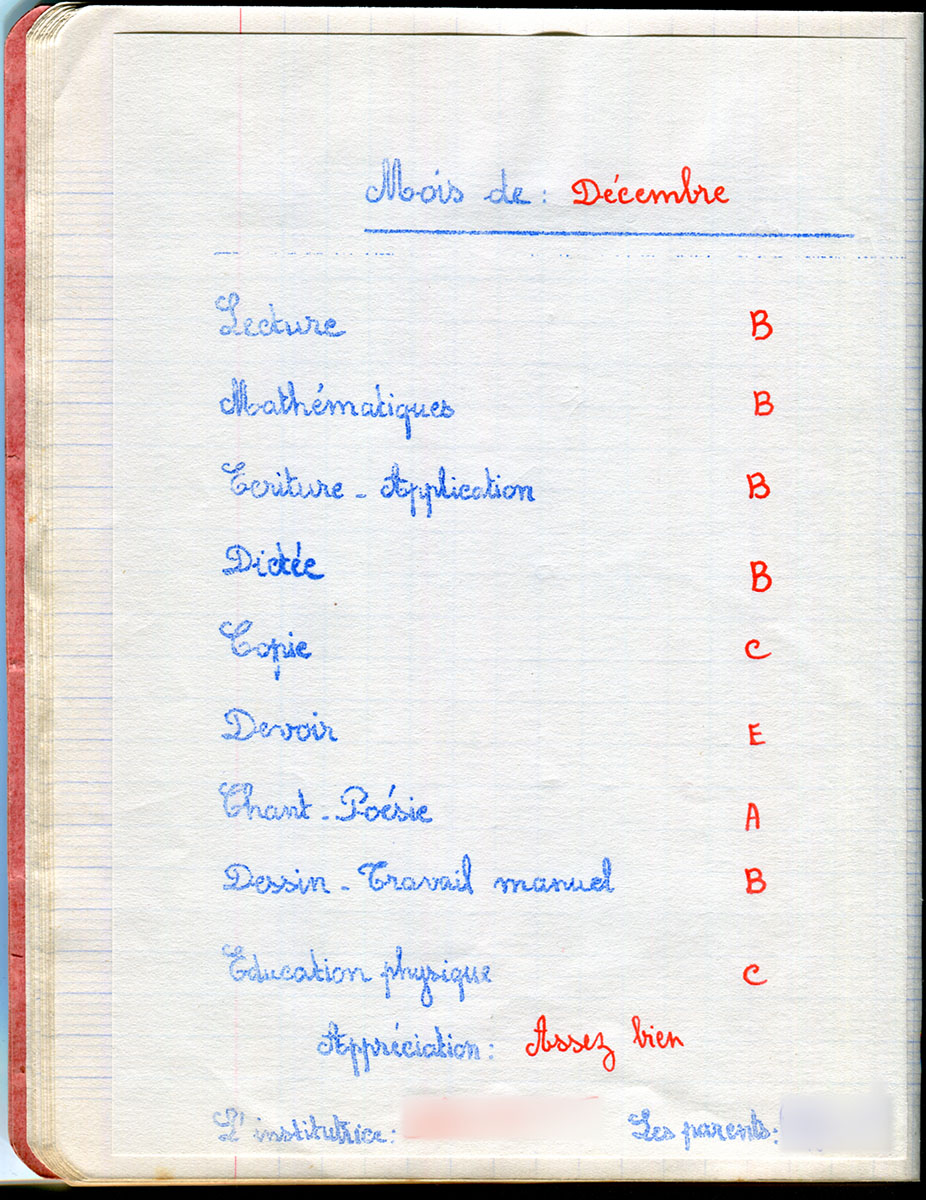 Mois de : Décembre
Lecture B
Mathématiques B
Ecriture - Application B
Dictée B
Copie C
Devoir E
Chant - Poésie A
Dessin - Travail manuel B
Education physique C
Appréciation : Assez bien
L'institutrice : Les parents :